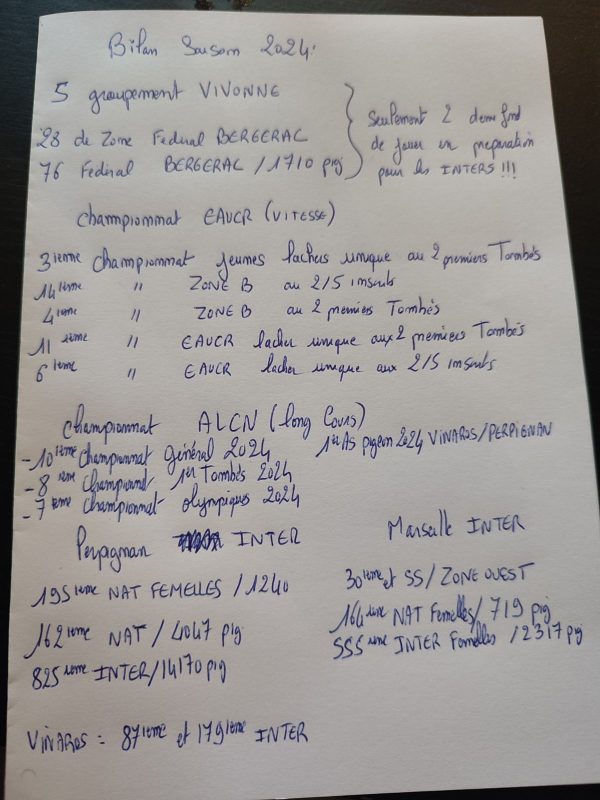 Bilan Saison 2024.
5 groupement VIVONNE
28 de Zone Federal BERGERAC
76 Federal BERGERAC / 1710 pig
Seulement 2 demi fond
de jouer en preparation
pour les INTERS !!!
Championnat EAUCR (VITESSE)
3ieme Championnat jeunes lachers unique au 2 premiers Tombés
14ieme " ZONE B au 2/5 inscrits
4ieme " ZONE B au 2 premiers Tombés
11ieme " EAUCR lacher unique aux 2 premiers Tombés
6ieme " EAUCR lacher unique aux 2/5 inscrits
Championnat ALCN (long Cours)
-10ieme Championnat général 2024
1er As pigeon 2024 VINAROS/PERPIGNAN
-8ieme Championnat 1er Tombés 2024
-7ieme Championnat olympiques 2024
Perpignan INTER
195ieme NAT FEMELLES / 1240
162ieme NAT / 4047 pig
825ieme INTER/14170 pig
Marseille INTER
30ieme et 55/ ZONE OUEST
164ieme NAT Femelles/ 719 pig
555ieme INTER Femelles / 2317 pig
VINAROS = 87ieme et 179ieme INTER